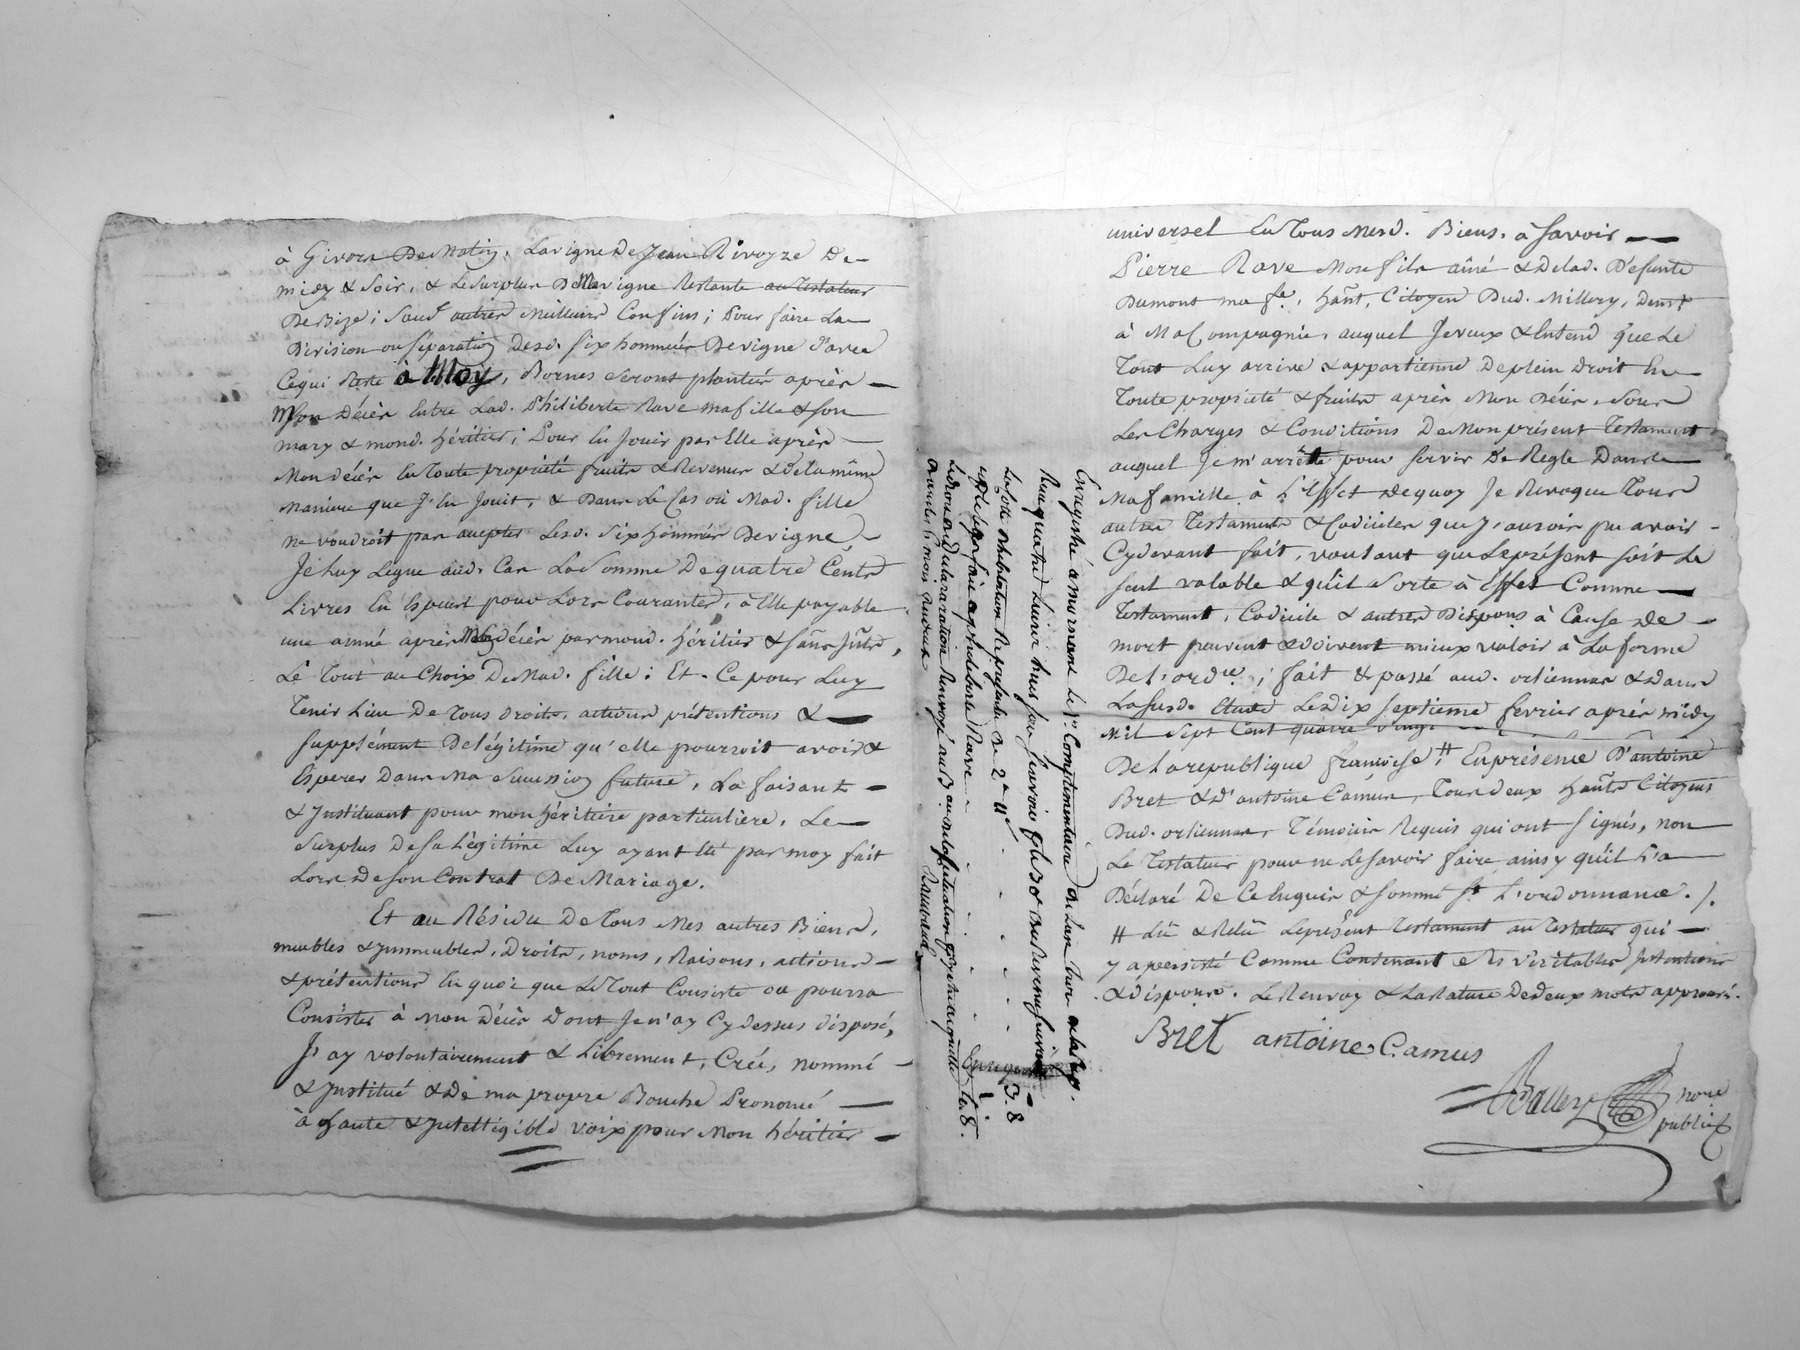 à Givors De Matin, La vigne De Jean Rivoyre De
midy & Soir, & Le Surplus De Ma vigne Restante au Testateur
De Bize; Sauf autres Meilleurs Confins; Pour faire La
Division ou Séparation Desd. Six hommées De vigne D'avec
Ce qui Reste à Moy, Bornes Seront plantées après
Mon Décès Entre Lad. Philiberte Rave ma fille & Son
mary & mond. héritier; Pour En Jouir par Elle après
Mon décès En Toute propriété fruits & Revenus & De la même
Maniere que J'En Jouit, & Dans Le Cas où Mad. fille
ne voudroit pas accepter Lesd. Six hommées De vigne,
Je Luy Legue aud. Cas La Somme De quatre Cents
Livres En Especes pour Lors Courantes, à Elle payable
une année après Mon décès par mond. héritier & Sans Jnts,
Le Tout au Choix De Mad. fille; Et Ce pour Luy
Tenir Lieu De Tous droits, actions prétentions &
Supplément De légitime qu'elle pourroit avoir &
Esperer Dans Ma Succession future, La faisant
& Jnstituant pour mon héritiere particuliere, Le
Surplus De Sa Légitime Luy ayant Eté par moy fait
Lors De Son Contrat De Mariage.
Et au Résidu De Tous Mes autres Biens,
meubles & Jmmeubles, Droits, noms, Raisons, actions
& prétentions En quoi que Le Tout Consiste ou pourra
Consister à Mon Décès Dont Je n'ay Cy dessus disposé,
J'ay volontairement & Librement, Créé, nommé
& Jnstitué & De ma propre Bouche Prononcé
à haute & Jntelligible voix pour Mon héritier
Enregistré à mornant Le Pr. Complementaire de L'an Trois de la Rep.
Reçu quatre Livres
La Dotte
Philiberte Rave
Enregistrement 3 . 8
universel En Tous Mesd. Biens, à Savoir
Pierre Rave Mon fils aîné & De Lad. Defunte
Dumont ma fe, habt, Citoyen Dud. Millery, Demt
à Ma Compagnie, auquel Je veux & Entend que Le
Tout Luy arrive & appartienne De plein Droit En
Toute propriété & fruits après Mon Décès, Sous
Les Charges & Conditions De Mon présent Testament
auquel Je m'arrête pour Servir De Regle Dans
Ma famille, à L'Effet De quoy Je Revoque Tous
autres Testaments & Codiciles que J'aurois pu avoir
Cy devant fait, voulant que Le présent Soit Le
Seul valable & qu'il Sorte à Effet Comme
Testament, Codicile & autres Dispons à Cause De
mort peuvent & doivent mieux valoir à La forme
De L'ordce; fait & passé aud. orlienas & Dans
La Susd. Etude Le Dix Septieme fevrier après midy
Mil Sept Cent quatre vingt
De La republique françoise, # En présence D'antoine
Bret & D'antoine Camus, Tous deux habts Citoyens
Dud. orlienas, Témoins Requis qui ont Signés, non
Le Testateur pour ne Le Savoir faire ainsy qu'il L'a
Déclaré De Ce Enquis & Sommé St L'ordonnance. /.
# Lû & Relû Le présent Testament au Testateur qui
y a persisté Comme Contenant Ses Véritables Jntentions
& dispons. Le Renvoy & La Rature De deux mots approuvés.
Bret antoine Camus
Ballery nore
public